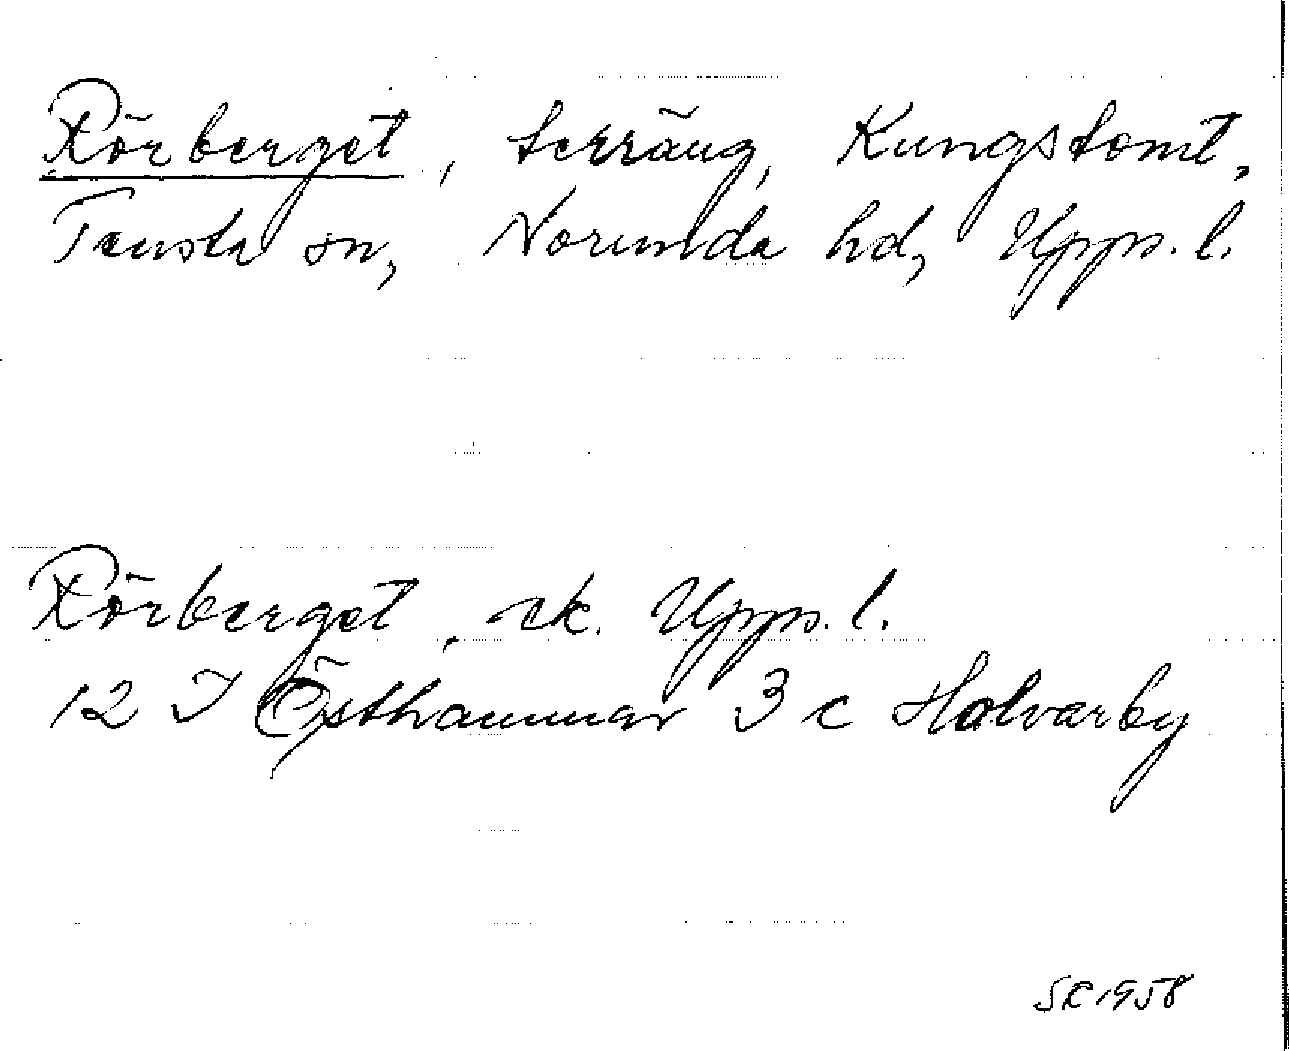 Rörberget, terräng, Kungstomt,
Tensta sn, Norunda hd, Upps. l.
Rörberget, ek. Upps. l.
12 I Östhammar 3 c Holvarby
SR 1958